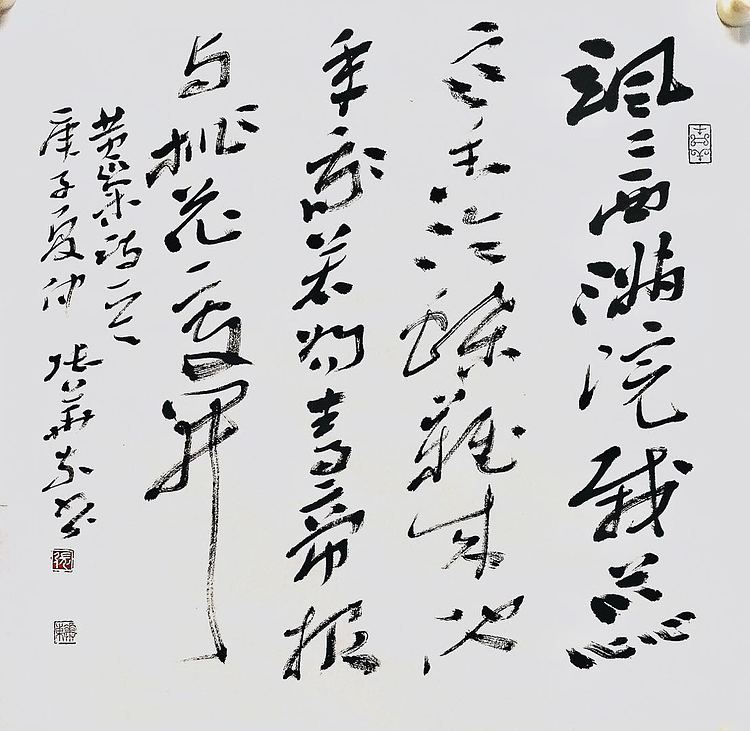 颯〻西满院栽蕊
寒香冷蝶難来他
年我若为青帝报
与桃花一处开
黄巢诗
庚子夏仲 张華东书
張
華東